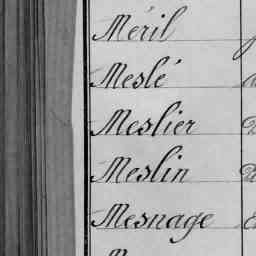 Méril
Meslé
Meslier
Meslin
Mesnage